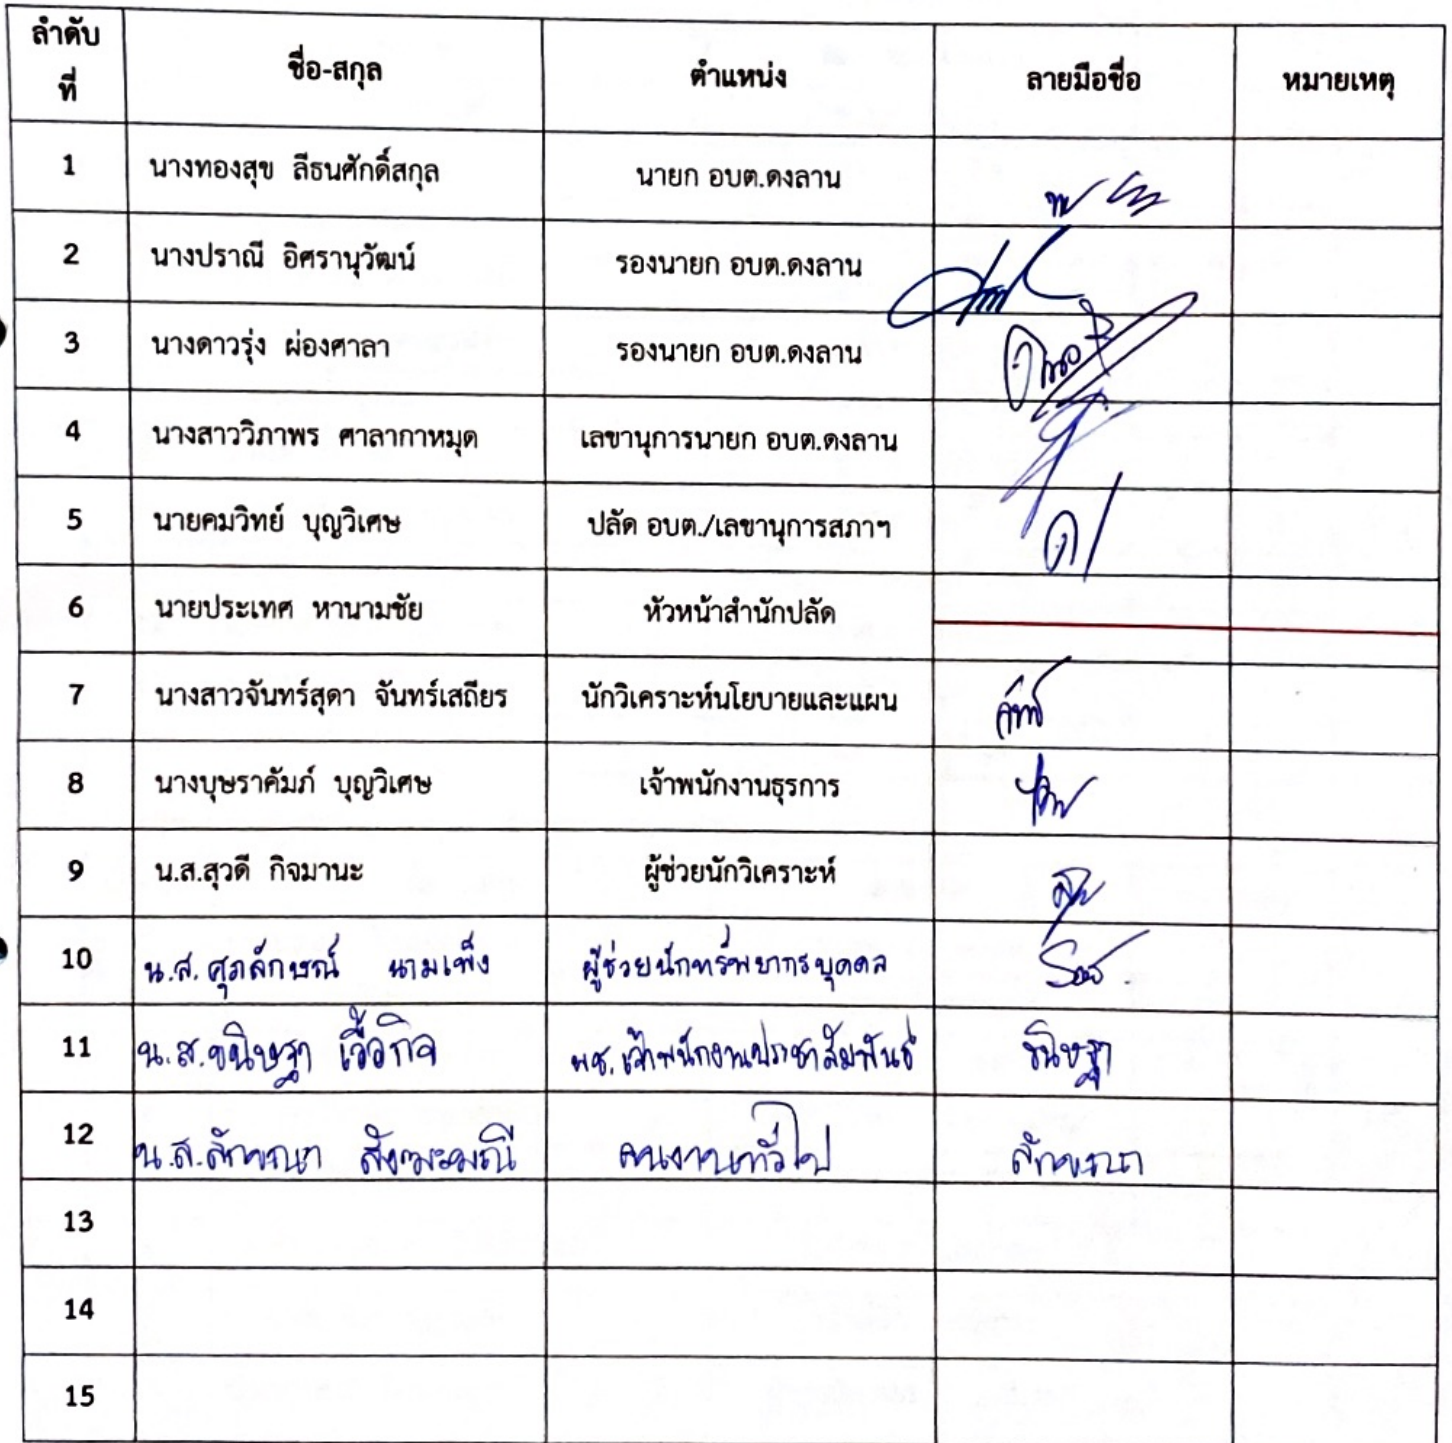 ลำดับที่ ชื่อ-สกุล ตำแหน่ง ลายมือชื่อ หมายเหตุ
1 นางทองสุข ลีธนศักดิ์สกุล นายก อบต.ดงลาน
2 นางปราณี อิศรานุวัฒน์ รองนายก อบต.ดงลาน
3 นางดาวรุ่ง ผ่องศาลา รองนายก อบต.ดงลาน
4 นางสาววิภาพร ศาลากาหมุด เลขานุการนายก อบต.ดงลาน
5 นายคมวิทย์ บุญวิเศษ ปลัด อบต./เลขานุการสภาฯ
6 นายประเทศ หานามชัย หัวหน้าสำนักปลัด
7 นางสาวจันทร์สุดา จันทร์เสถียร นักวิเคราะห์นโยบายและแผน
8 นางบุษราคัมภ์ บุญวิเศษ เจ้าพนักงานธุรการ
9 น.ส.สุวดี กิจมานะ ผู้ช่วยนักวิเคราะห์
10 น.ส.ศุภลักษณ์ นามเพ็ง ผู้ช่วยนักทรัพยากรบุคคล
11 น.ส.ขนิษฐา เอื้อกิจ ผช.เจ้าพนักงานประชาสัมพันธ์ ขนิษฐา
12 น.ส.ลักขณา คนงานทั่วไป ลักขณา
13
14
15